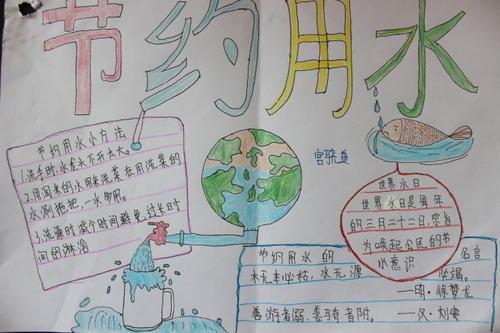 节约用水
节约用水小方法
1.洗手时,水龙头不开太大。
2.用淘米的水用来洗菜在用洗菜的
水涮拖把,一水多用。
3.洗澡时,减个时间避免过长时
间的淋浴
世界水日
世界水日是每年
的三月二十二日,宗旨
为唤起公民的节
水意识
节约用水的名言
木无本必枯,水无源必竭。
——明·徐梦龙
善游者溺,善骑者附。——汉·刘安